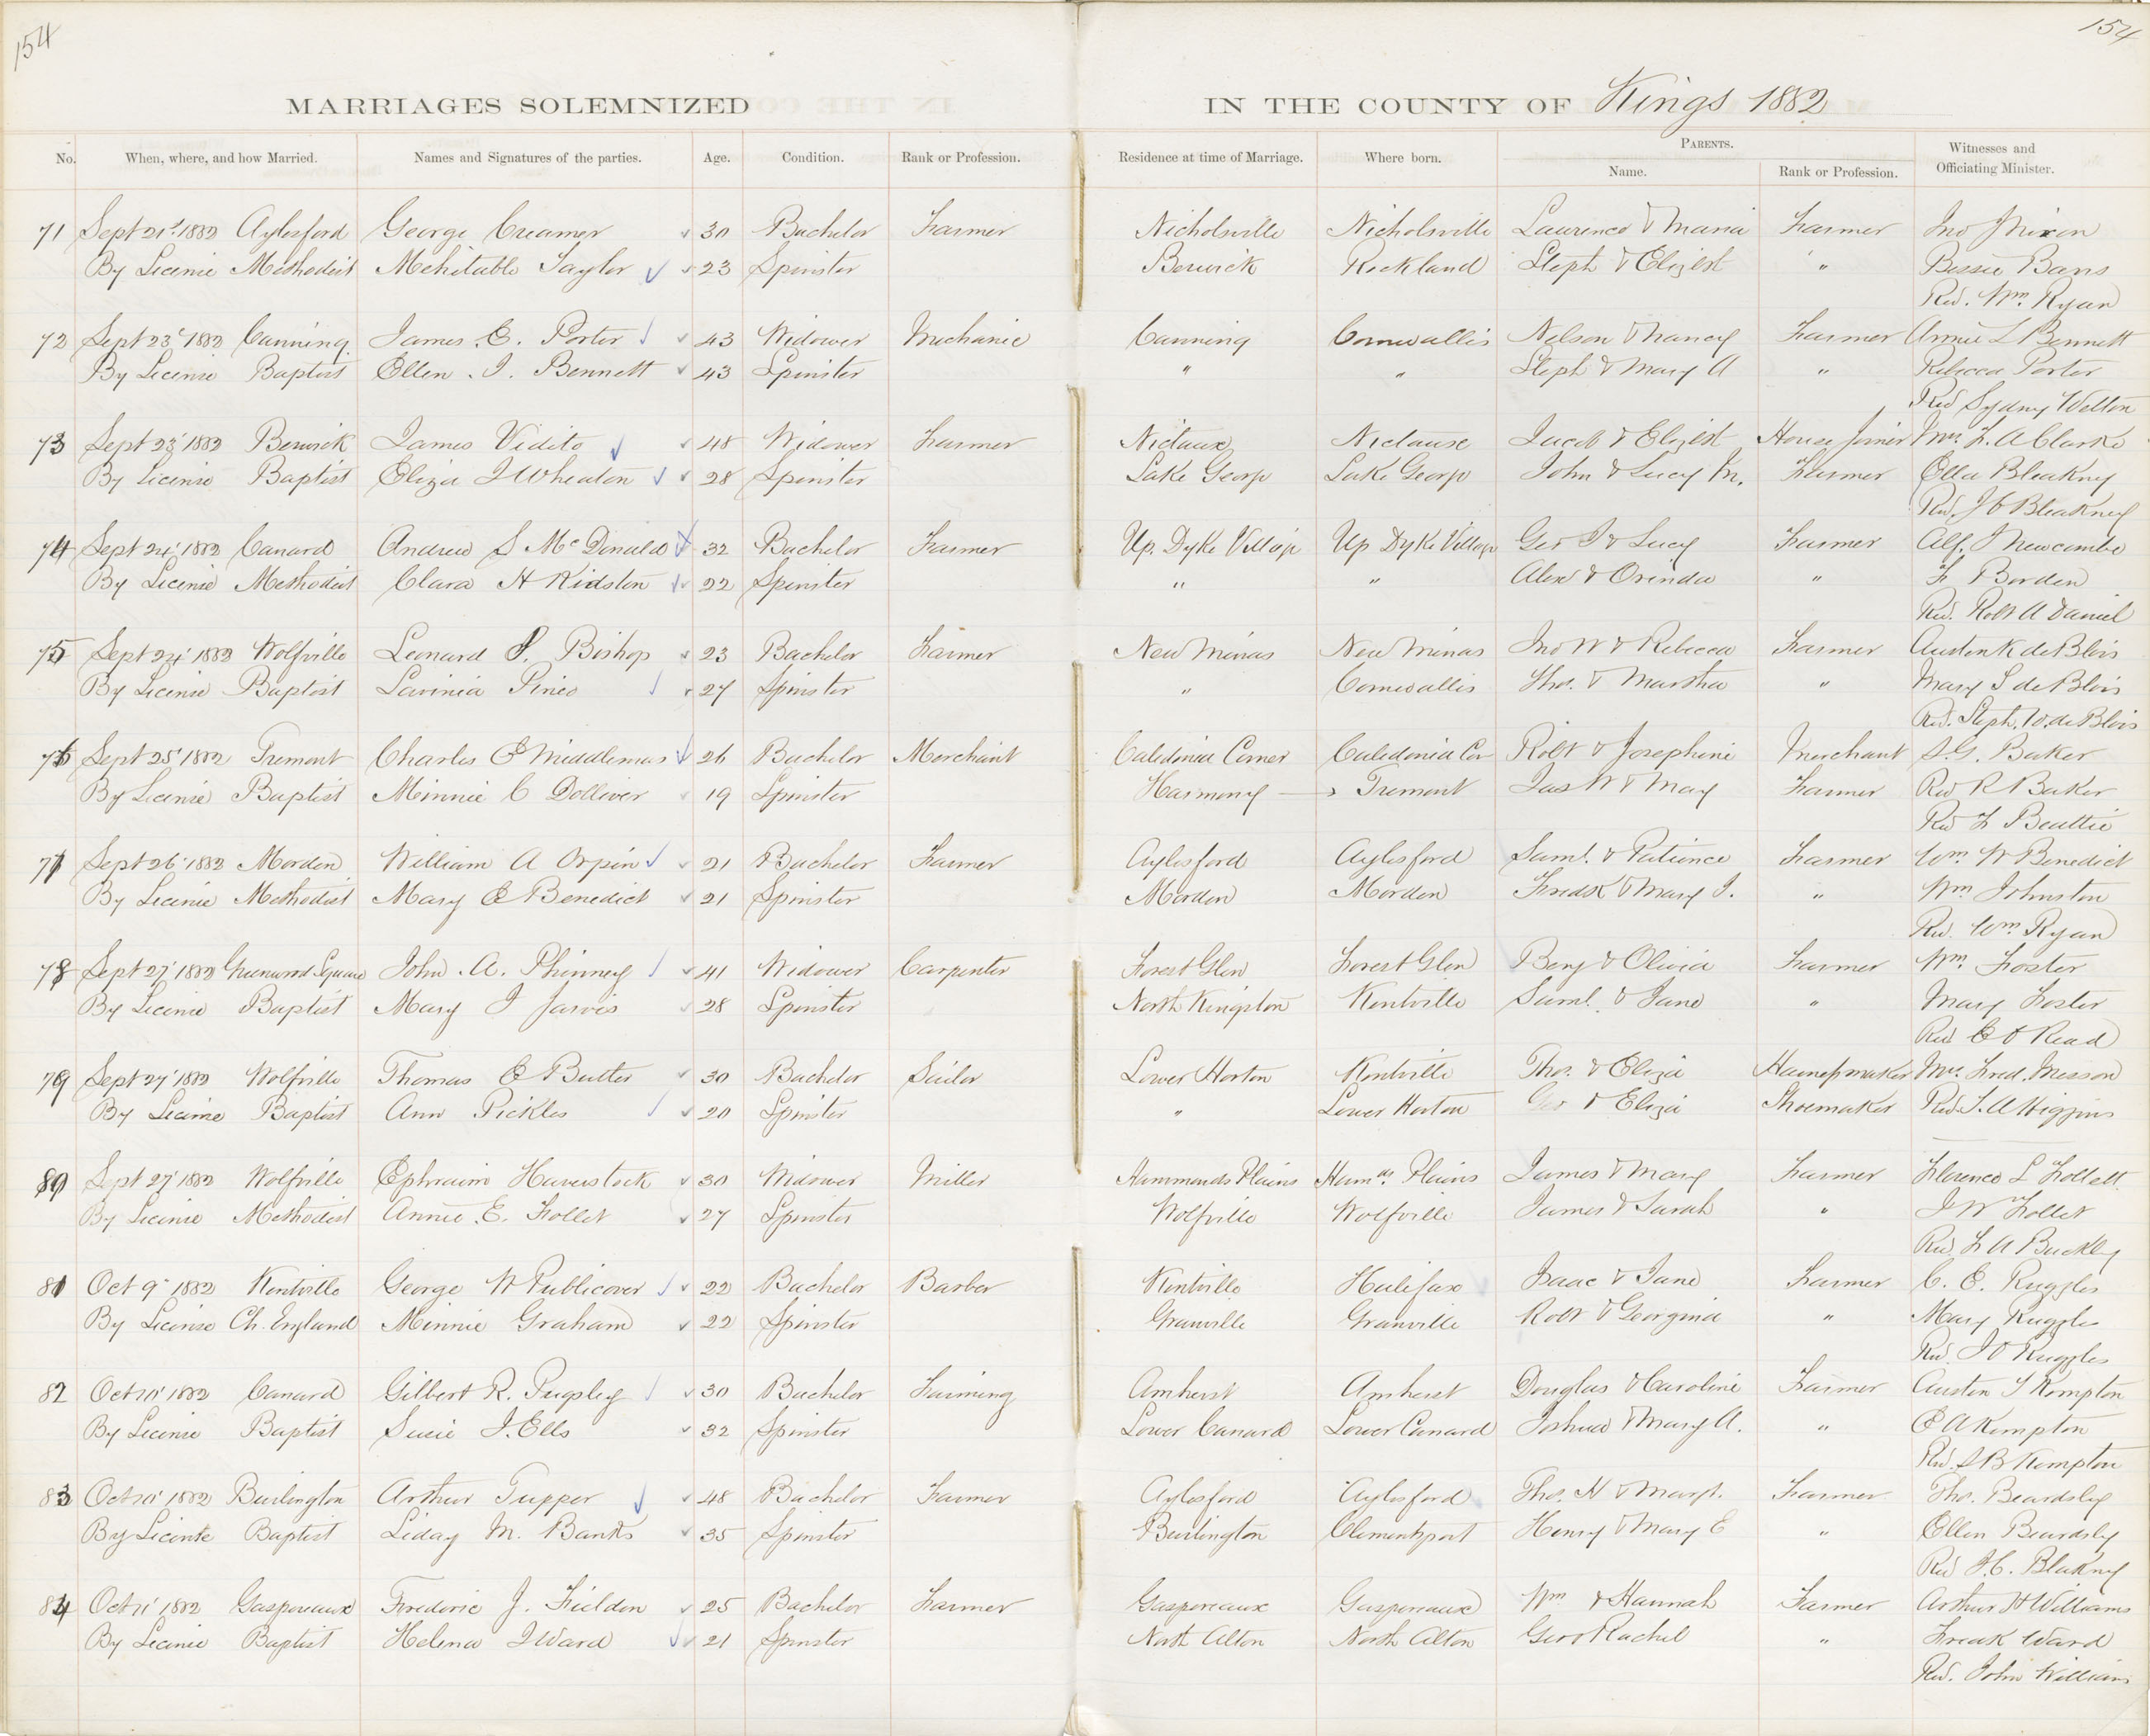 154
154
MARRIAGES SOLEMNIZED IN THE COUNTY OF Kings 1882
No. When, where, and how Married. Names and Signatures of the parties. Age. Condition. Rank or Profession. Residence at time of Marriage. Where born. PARENTS. Name. Rank or Profession. Witnesses and Officiating Minister.
71 Sept 21st 1882 Aylesford George Creamer 30 Bachelor Farmer Nicholsville Nicholsville Laurence & Maria Farmer Jno Nixon
By License Methodist Mehitable Taylor 23 Spinster Berwick Rockland Steph & Elizbt " Bessie Bans
Rev. Wm Ryan
72 Sept 23d 1882 Canning James E. Porter 43 Widower Mechanic Canning Cornwallis Nelson & Nancy Farmer Annie L Bennett
By License Baptist Ellen J. Bennett 43 Spinster " " Steph & Mary A " Rebecca Porter
Rev Sydney Welton
73 Sept 23' 1882 Berwick James Vidito 48 Widower Farmer Nictaux Nictaux Jacob & Elizbt House Joiner Mrs L. A Clarke
By License Baptist Eliza J Wheaton 28 Spinster Lake George Lake George John & Lucy M. Farmer Ella Bleakney
Rev. J C Bleakney
74 Sept 24' 1882 Canard Andrew S McDonald 32 Bachelor Farmer Up. Dyke Village Up Dyke Village Geo I & Lucy Farmer Alf. Newcombe
By License Methodist Clara H Kidston 22 Spinster " " Alex & Orinda " F Borden
Rev. Robt A Daniel
75 Sept 24' 1882 Wolfville Leonard S. Bishop 23 Bachelor Farmer New Minas New Minas Jno W & Rebecca Farmer Austen K de Blois
By License Baptist Lavinia Pineo 27 Spinster " Cornwallis Thos. & Martha " Mary S de Blois
Rev. Steph. W. de Blois
76 Sept 25' 1882 Tremont Charles E Middlemas 26 Bachelor Merchant Caledonia Corner Caledonia Cor Robt & Josephine Merchant S. G. Baker
By License Baptist Minnie C Dolliver 19 Spinster Harmony Tremont Jas W & Mary Farmer Rev R Baker
Rev F Beattie
77 Sept 26' 1882 Morden William A Orpin 21 Bachelor Farmer Aylesford Aylesford Saml. & Patience Farmer Wm W Benedict
By License Methodist Mary E Benedict 21 Spinster Morden Morden Fredk & Mary J. " Wm Johnston
Rev. Wm Ryan
78 Sept 27' 1882 Greenwood Square John A. Phinney 41 Widower Carpenter Forest Glen Forest Glen Benj & Olivia Farmer Wm. Foster
By License Baptist Mary J Jarvis 28 Spinster North Kingston Kentville Saml. & Jane " Mary Foster
Rev E O Read
79 Sept 27' 1882 Wolfville Thomas E Butler 30 Bachelor Sailor Lower Horton Kentville Thos. & Eliza Harnessmaker Mrs. Fred. Messon
By License Baptist Ann Pickles 20 Spinster " Lower Horton Geo & Eliza Shoemaker Rev. T. A Higgins
80 Sept 27' 1882 Wolfville Ephraim Haverstock 30 Widower Miller Hammonds Plains Hamds. Plains James & Mary Farmer Florence L Follett
By License Methodist Annie E. Follet 27 Spinster Wolfville Wolfville James & Sarah " J W Follet
Rev. F A Buckley
81 Oct 9" 1882 Kentville George W Publicover 22 Bachelor Barber Kentville Halifax Isaac & Jane Farmer C. E. Ruggles
By License Ch. England Minnie Graham 22 Spinster Granville Granville Robt & Georgina " Mary Ruggles
Rev. J O Ruggles
82 Oct 10' 1882 Canard Gilbert R. Pugsley 30 Bachelor Farming Amherst Amherst Douglas & Caroline Farmer Austen T Kempton
By License Baptist Susie J. Ells 32 Spinster Lower Canard Lower Canard Joshua & Mary A. " E A Kempton
Rev. S B Kempton
83 Oct 10' 1882 Burlington Arthur Tupper 48 Bachelor Farmer Aylesford Aylesford Thos. H & Margt. Farmer Thos. Beardsley
By License Baptist Liday M. Banks 35 Spinster Burlington Clementsport Henry & Mary E " Ellen Beardsly
Rev J. C. Blakney
84 Oct 11' 1882 Gaspereaux Frederic J. Fielden 25 Bachelor Farmer Gaspereaux Gaspereaux Wm & Hannah Farmer Arthur H Williams
By License Baptist Helena J Ward 21 Spinster North Alton North Alton Geo & Rachel " Freak Ward
Rev. John Williams